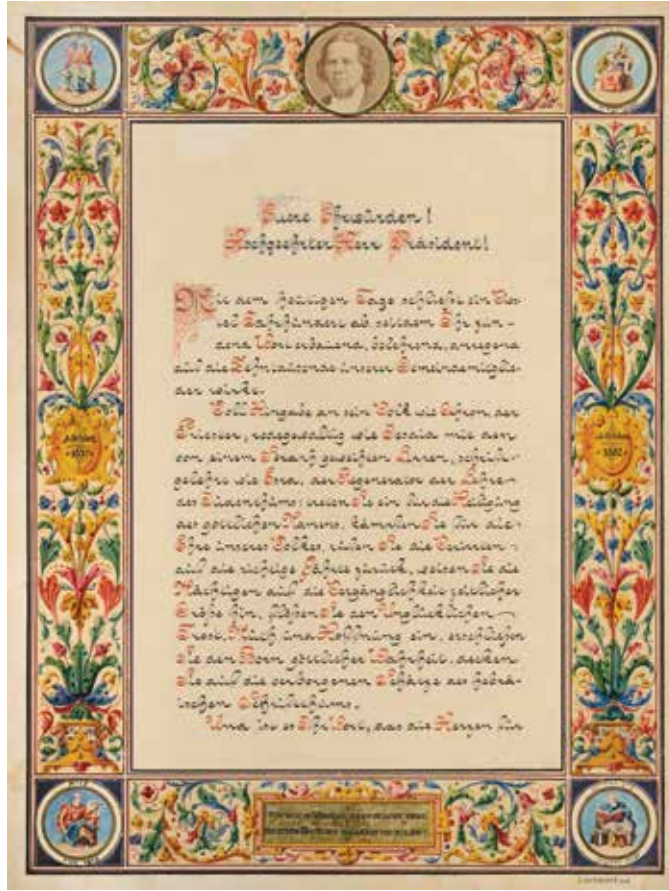 Euere Ehrwürden!
Hochgeehrter Herr Präsident!
Mit dem heutigen Tage schließt ein Vier-
tel Jahrhundert ab, seitdem Ihr zün-
dend Wort erbauend, belehrend, anregend
auf die Zehntausende unserer Gemeindemitglie-
der wirkt.
Voll Hingabe an sein Volk wie Ahron, der
Priester, redegewaltig wie Jesaia mit den
von einem Seraph geweihten Lippen, schrift-
gelehrt wie Esra, der Regenerator der Lehre
des Judenthums: treten Sie ein für die Heiligung
des göttlichen Namens, kämpfen Sie für die
Ehre unseres Volkes, rufen Sie die Verirrten
auf die richtige Fährte zurück, weisen Sie die
Mächtigen auf die Vergänglichkeit zeitlicher
Größe hin, flößen Sie den Unglücklichen
Trost, Muth und Hoffnung ein, erschließen
Sie den Born göttlicher Wahrheit, decken
Sie auf die verborgenen Schätze des hebrä-
ischen Schriftthums.
Und ist es Ihr Wort, das die Herzen für